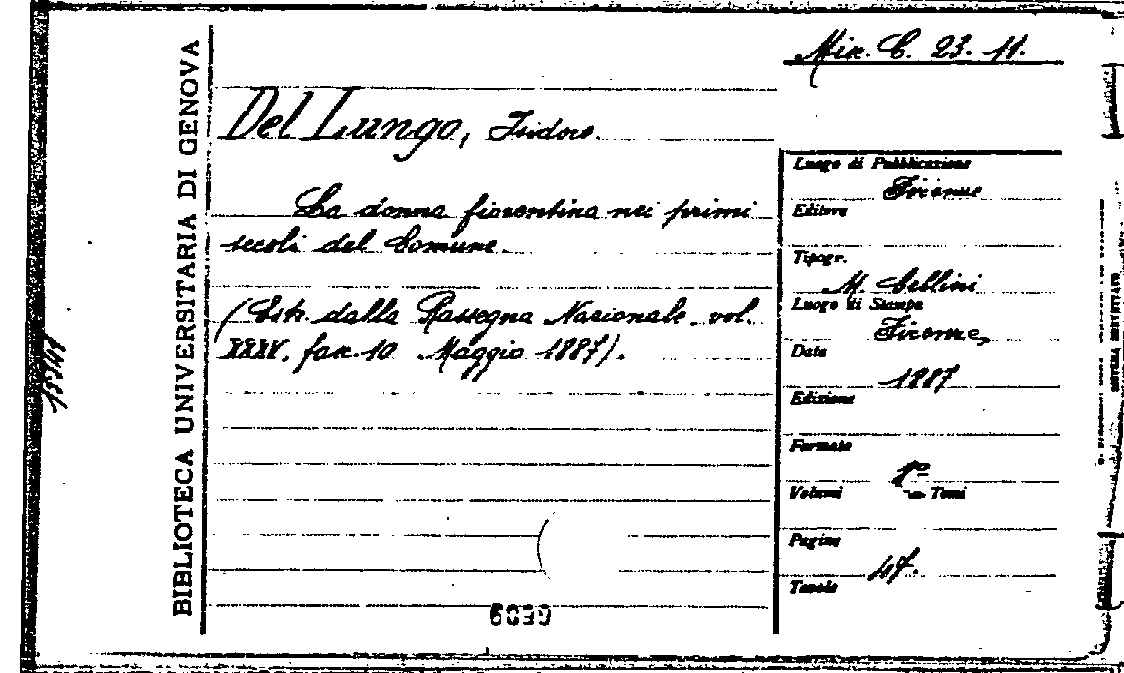 BIBLIOTECA UNIVERSITARIA DI GENOVA
Mir. C. 23. 11.
Del Lungo, Isidoro.
La donna fiorentina nei primi
secoli del Comune.
(Estr. dalla Rassegna Nazionale. vol.
XXXV. fasc. 10 Maggio 1887).
Luogo di Pubblicazione
Firenze
Editore
Tipogr.
M. Cellini
Luogo di Stampa
Firenze,
Data
1887
Edizione
Formato
8º
Volumi Tomi
Pagine
47.
Tavole